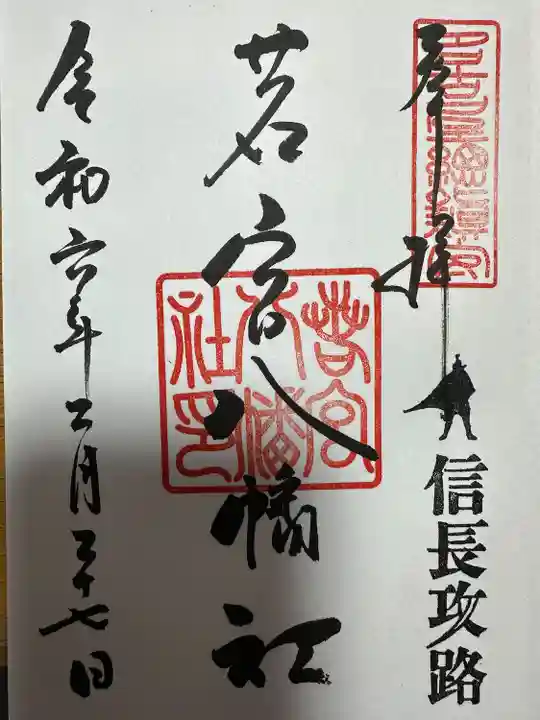 奉拝
信長攻路
若宮八幡社
若宮八幡社印
令和六年二月二十七日